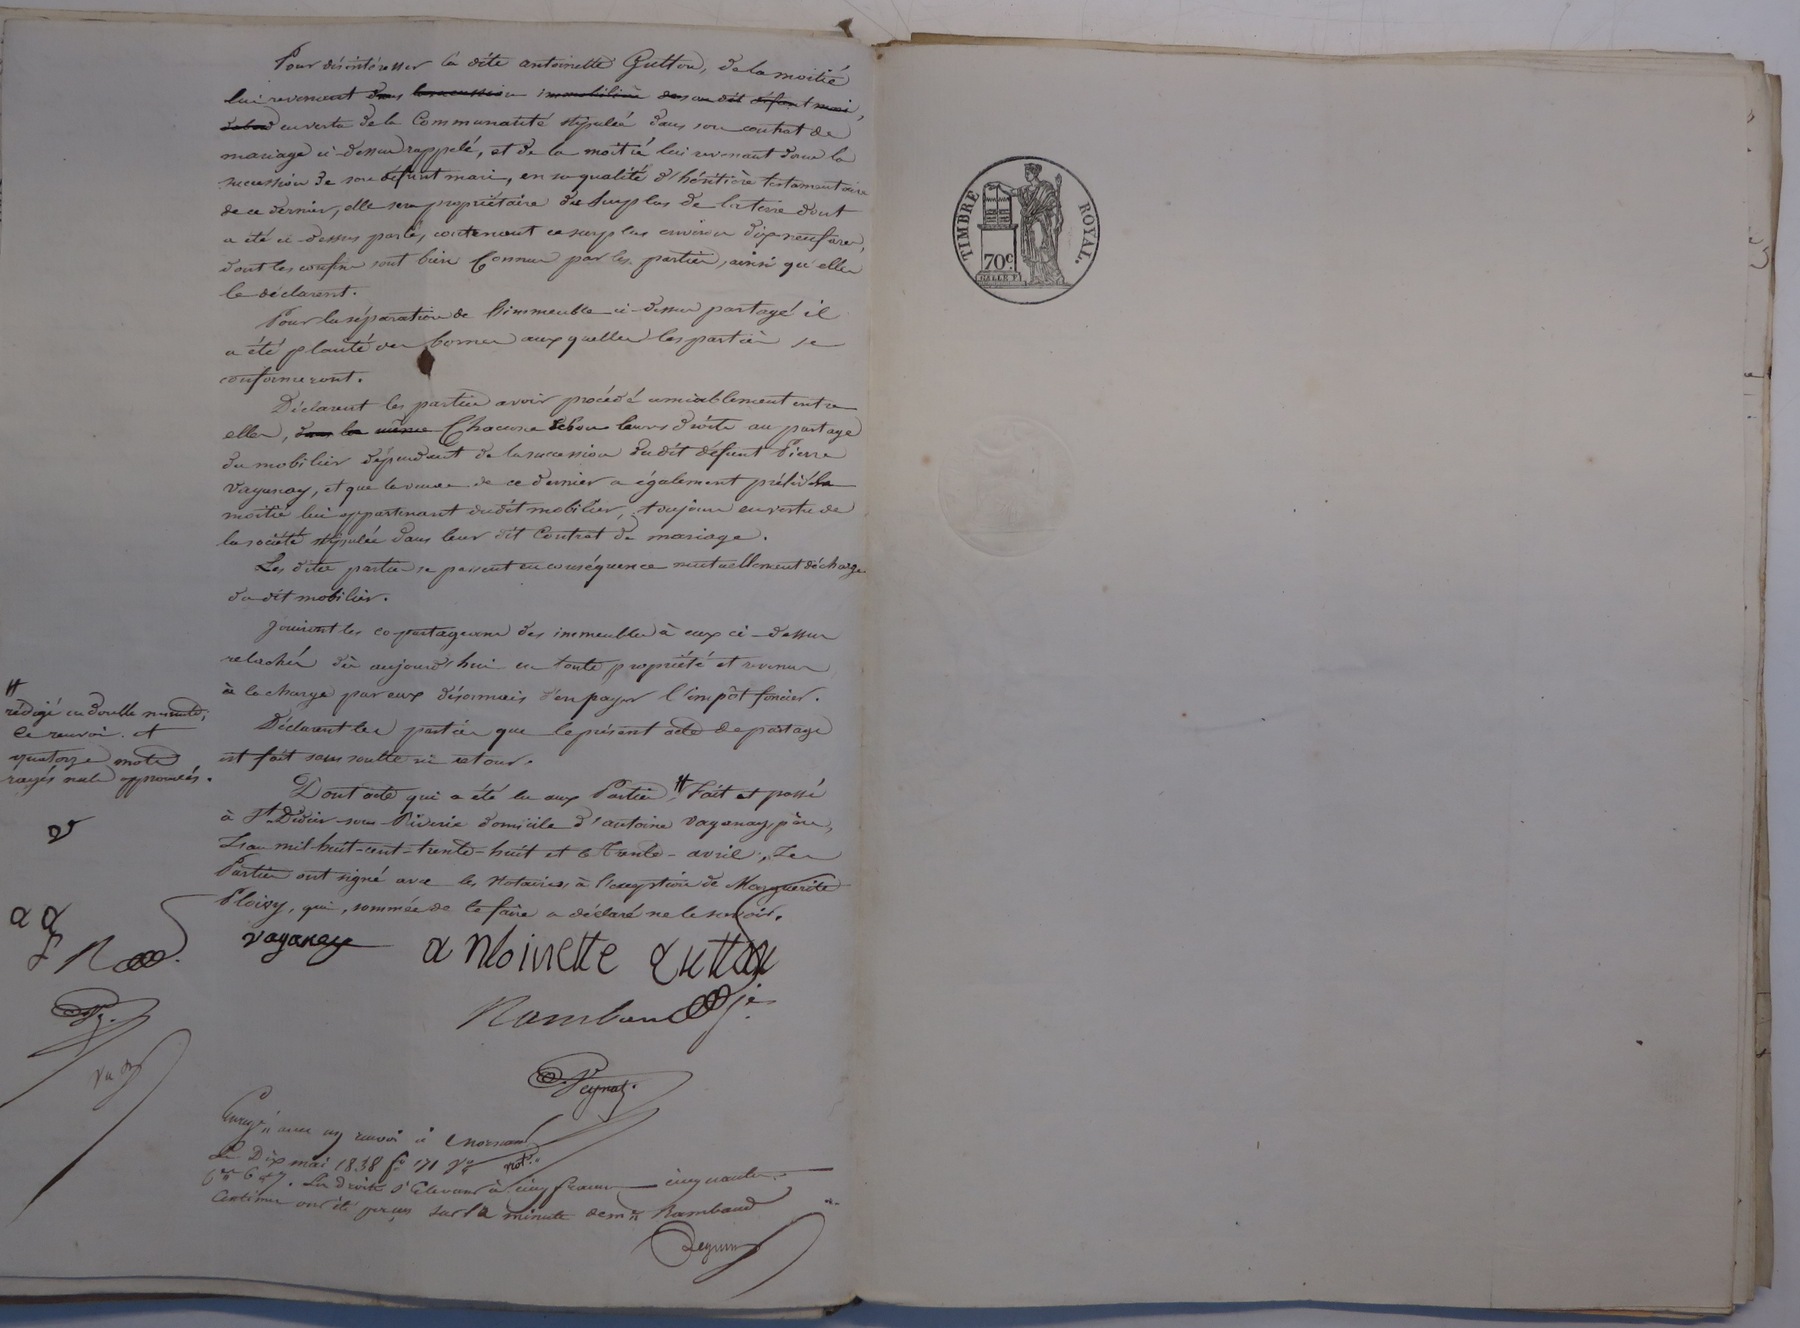 Pour désintéresser la dite antoinette Gutton, de la moitié
lui revenant dans la succession immobilière de son dit défunt mari,
d'abord en vertu de la Communauté stipulée dans son contrat de
mariage ci-dessus rappelé, et de la moitié lui revenant dans la
succession de son défunt mari, en sa qualité d'héritière testamentaire
de ce dernier, elle sera propriétaire du surplus de la terre dont
a été ci-dessus parlé, contenant ce surplus environ dix neuf ares,
dont les confins sont bien Connus par les parties, ainsi qu'elles
le déclarent.
Pour la séparation de l'immeuble ci-dessus partagé il
a été planté des bornes auxquelles les parties se
conformeront.
Déclarent les parties avoir procédé amiablement entre
elles, dans la même Chacune selon leurs droits au partage
du mobilier dépendant de la succession du dit défunt Pierre
Vaganay, et que la veuve de ce dernier a également prélevé la
moitié lui appartenant dudit mobilier, toujours en vertu de
la société stipulée dans leur dit Contrat de mariage.
Les dites parties se passent en conséquence mutuellement décharge
du dit mobilier.
Jouiront les co-partageans des immeubles à eux ci-dessus
relachés dès aujourd'hui en toute propriété et revenus
à la charge par eux désormais d'en payer l'impôt foncier.
Déclarent les parties que le présent acte de partage
est fait sans soulte ni retour.
Dont acte qui a été lu aux Parties, # Fait et passé
à St. Didier-sous-Riverie domicile d'antoine Vaganay, père,
L'an mil-huit-cent-trente-huit et le trente-avril, Les
Parties ont signé avec les Notaires, à l'exception de Marguerite
Ploivy, qui, sommée de le faire a déclaré ne le savoir.
#
rédigé en double minute,
Ce renvoi et
quatorze mots
rayés nuls approuvés.
v
a g
R
vaganay antoinette gutton
Rambaud je
Peynat
Enregé avec un renvoi à Mornant
Le Dix mai 1838 fo 171 Vo
Ces 6 et 7. Les droits s'élevant à cinq francs cinquante
Centimes ont été perçus sur la minute de Me Rambaud
not.
TIMBRE ROYAL.
70c